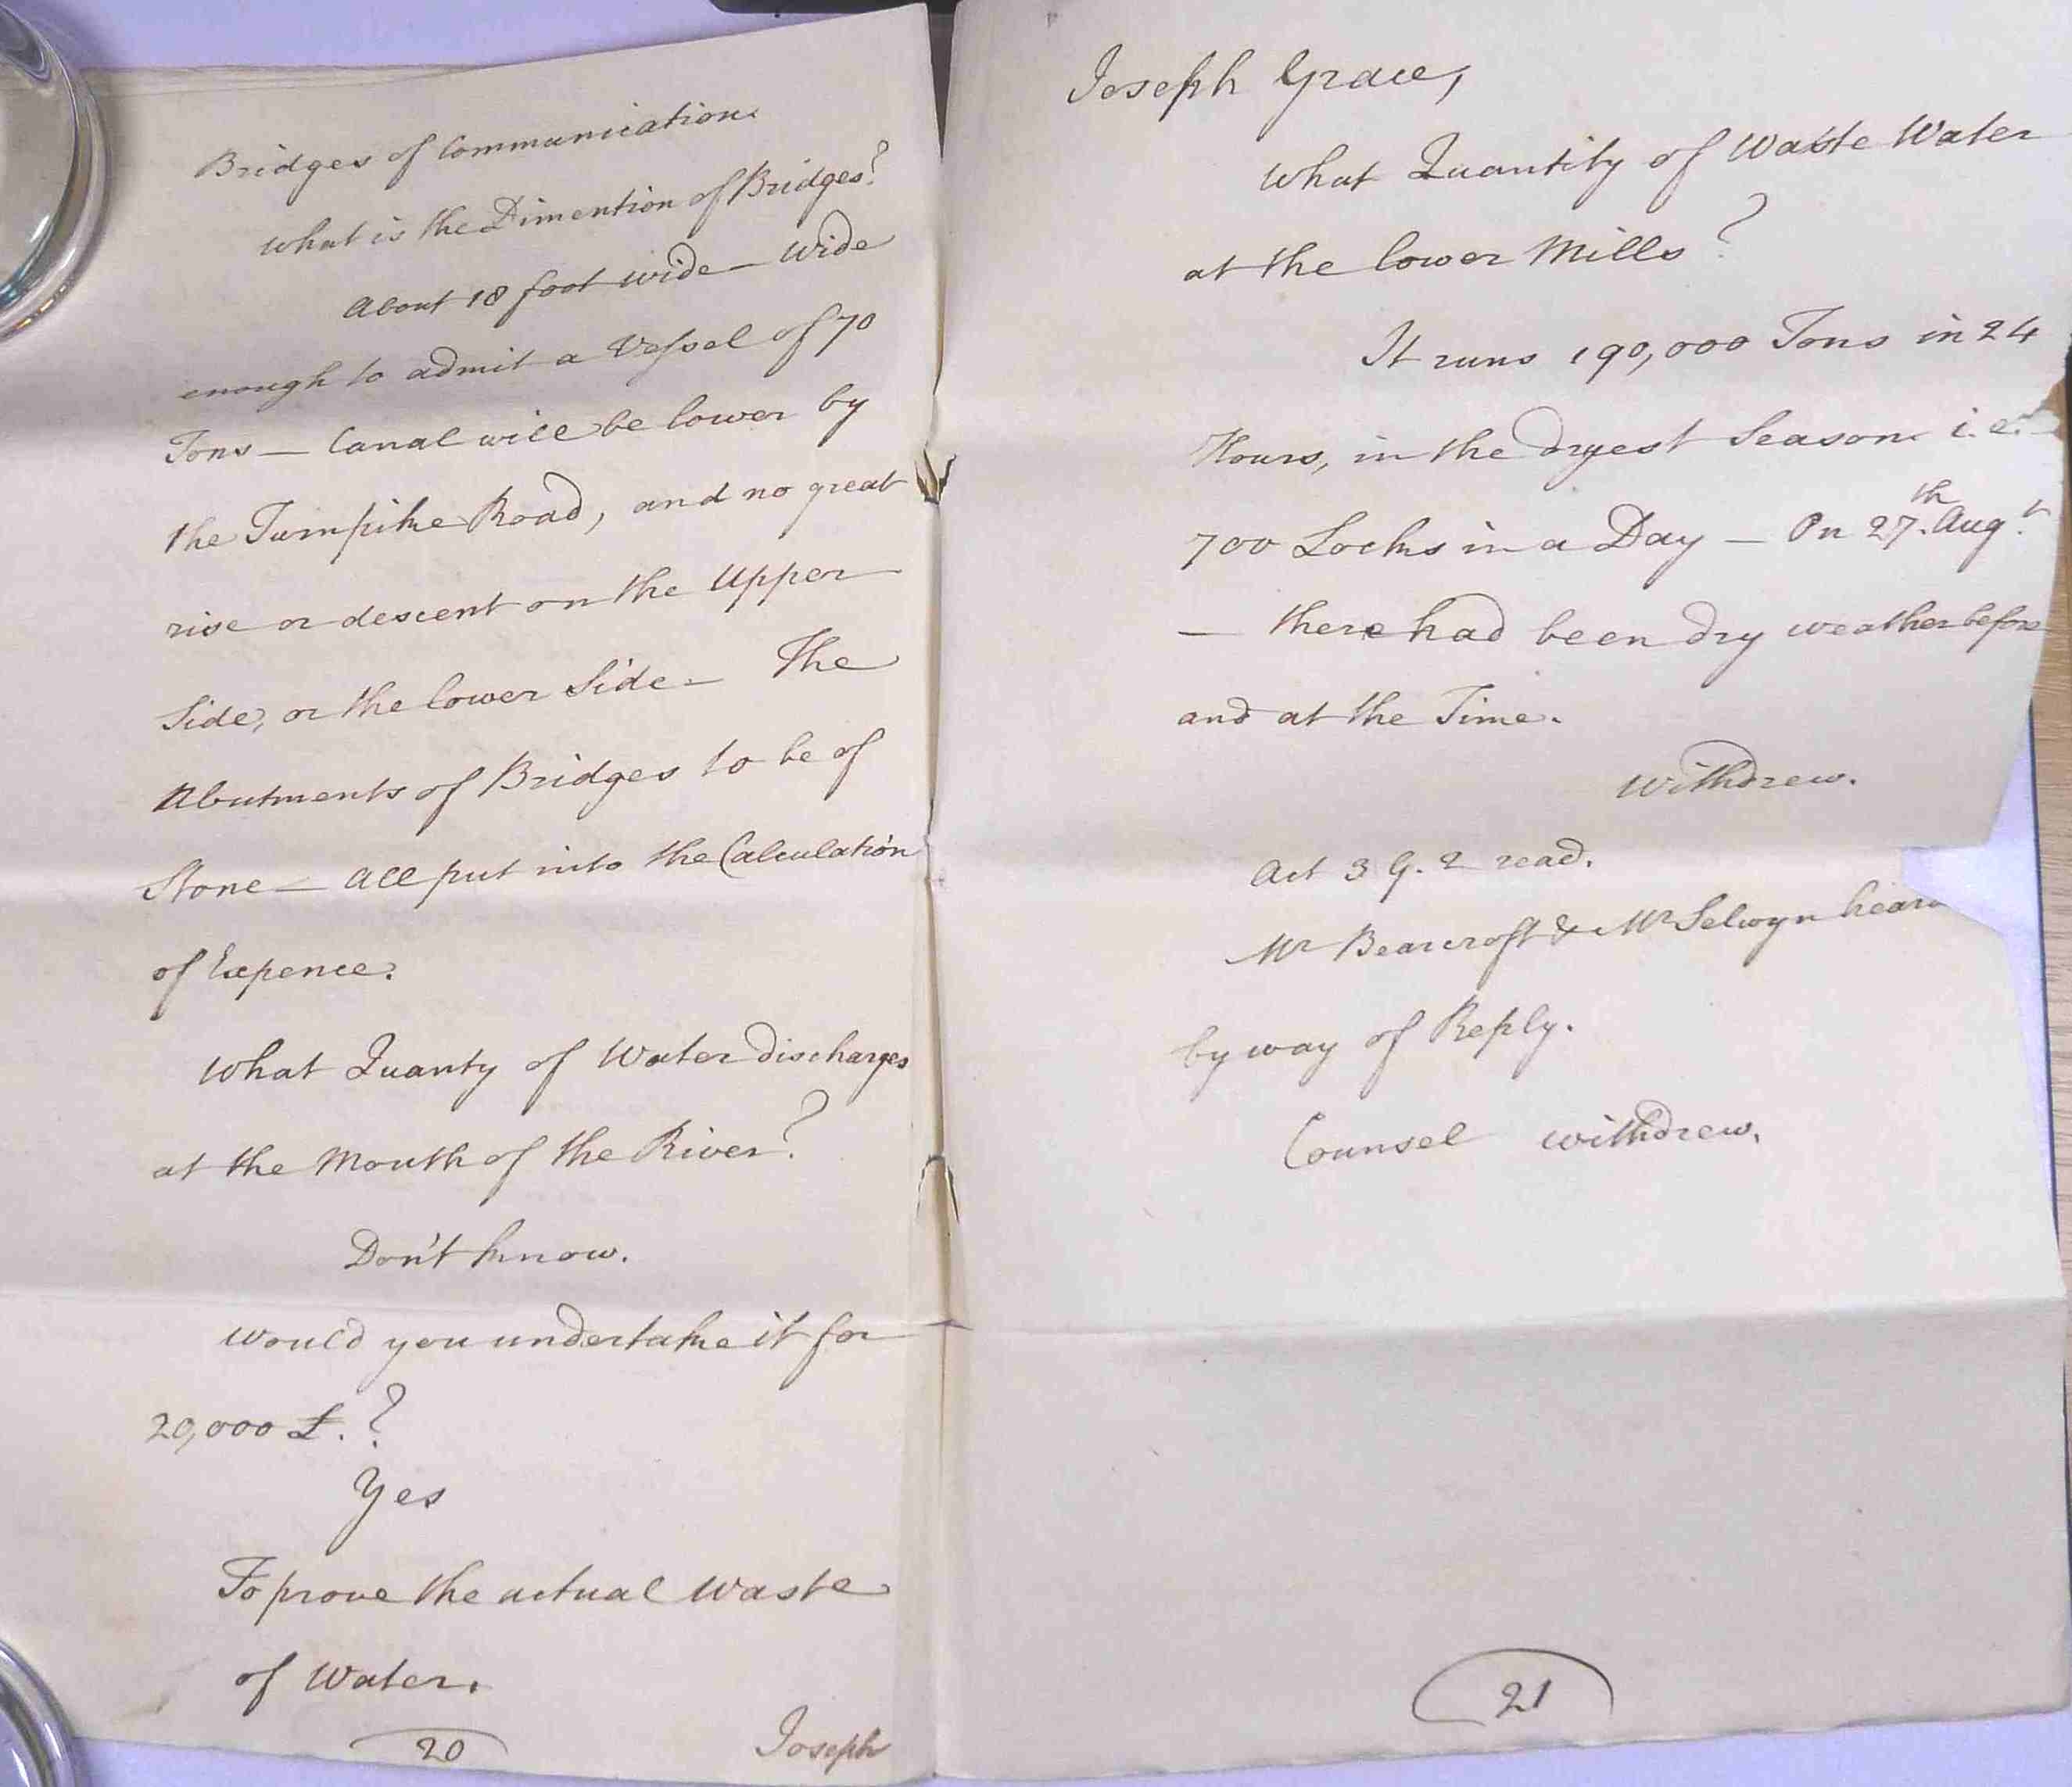 Bridges of Communication.
What is the Dimention of Bridges?
About 18 foot wide — Wide
enough to admit a Vessel of 70
Tons — Canal will be lower by
the Turnpike Road, and no great
rise or descent on the Upper
Side, or the lower Side — The
Abutments of Bridges to be of
Stone — all put into the Calculation
of Expence.
What Quanty of Water discharges
at the Mouth of the River?
Don't know.
Would you undertake it for
20,000 £. ?
Yes
To prove the actual Waste
of Water.
20
Joseph
Joseph Grace,
What Quantity of Waste Water
at the lower Mills?
It runs 190,000 Tons in 24
Hours, in the dryest Season i.e. —
700 Locks in a Day — On 27.th Augt.
— there had been dry weather before
and at the Time.
Withdrew.
Act 3 G. 2 read.
Mr Bearcroft & Mr Selwyn hear
by way of Reply.
Counsel withdrew.
21